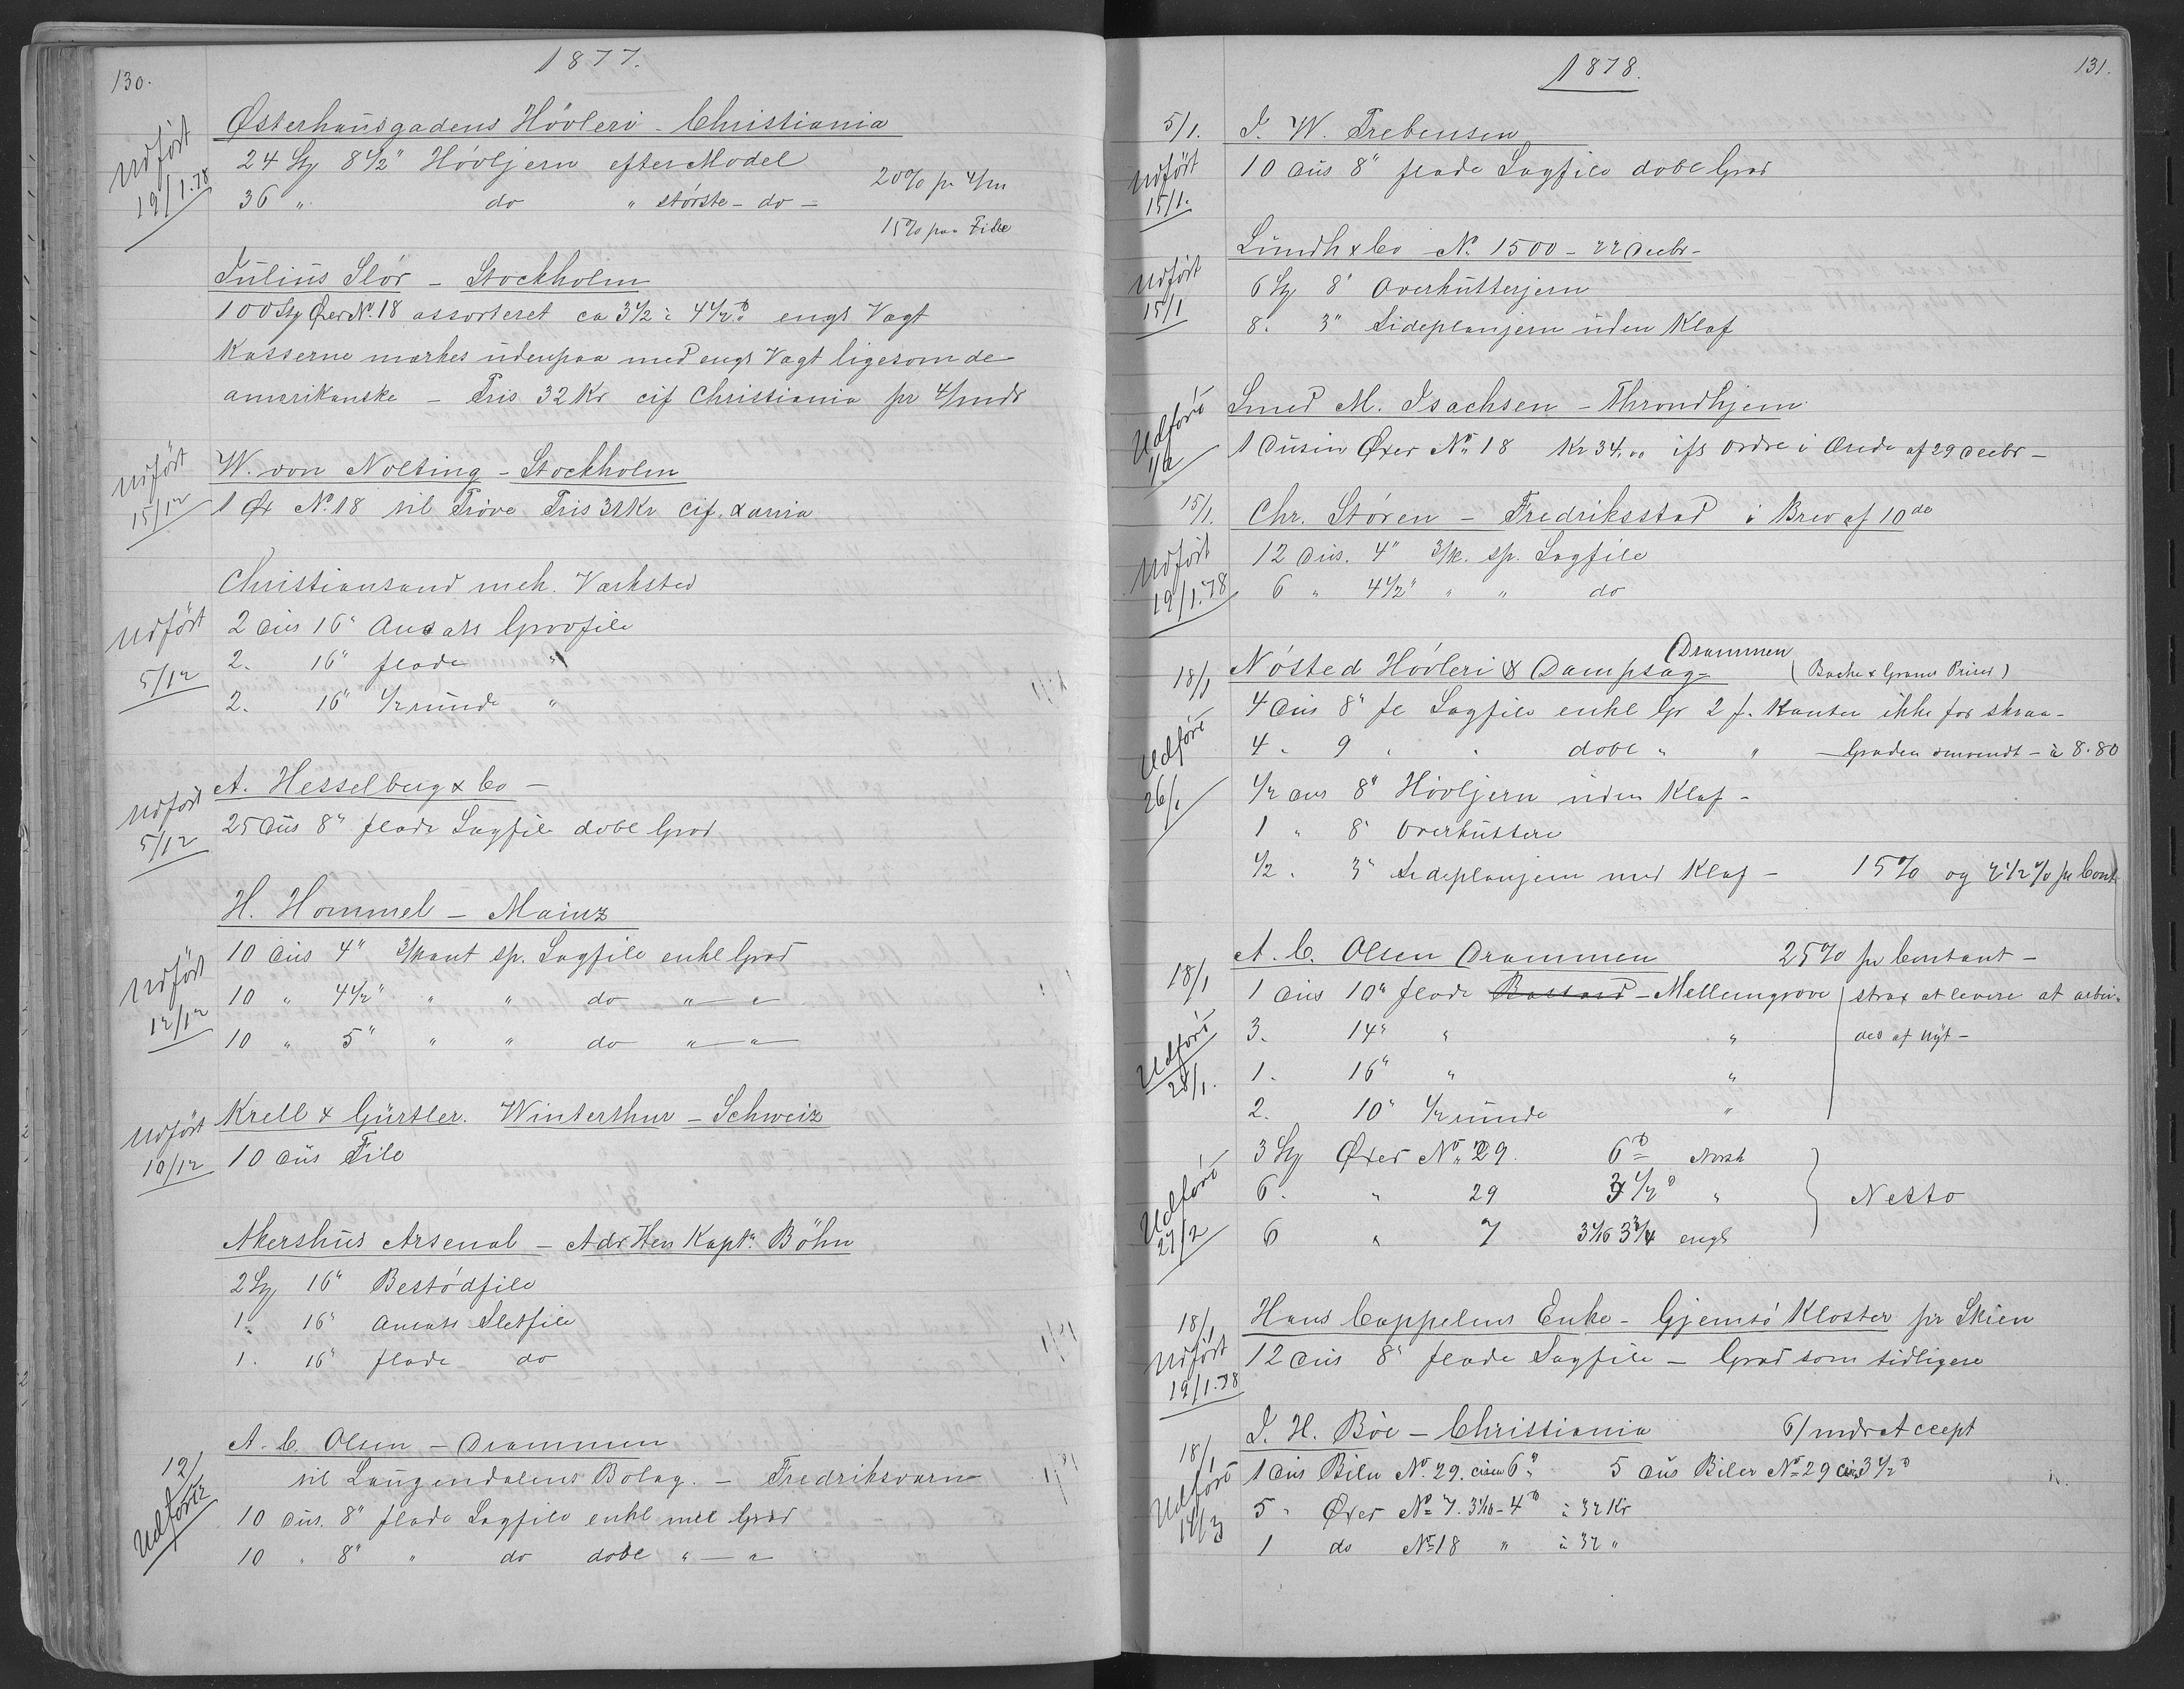 130.
1877.
Østerhausgadens Høvleri - Christiania
Udført 19/1.78
24 Stg 8 1/2" Høvljern efter Model
20% pr 4/m
36 " do " største - do -
15% paa File
Julius Slör - Stockholm
100 Stg Øxer No. 18 assorteret ca 3 1/2 à 4 1/2 engl Vægt
Kasserne mærkes udenpaa med engl Vægt ligesom de
amerikanske - Pris 32 Kr cif Christiania pr 4/mdr
W. von Nolting - Stockholm
Udført 15/12
1 Øx No. 18 til Prøve Pris 31 Kr cif. Xania
Christiansand mek. Værksted
Udført 5/12
2 dus 16" Ansats Grovfile
2. 16" flade "
2. 16" 1/2 runde "
A. Hesselberg & Co -
Udført 5/12
25 dus 8" flade Sagfile dobl Grad
H. Hommel - Mainz
Udført 12/12
10 dus 4" 3/kant sp. Sagfile enkl Grad
10 " 4 1/2" " " do " - "
10 " 5" " " do " - "
Krell & Gürtler. Winterthur - Schweiz
Udført 10/12
10 dus File
Akershus Arsenal - Adr Herr Kaptn. Böhn
2 Stg 16" Bestødfile
1. 16" Ansats Sletfile
1. 16" flade do
A. C. Olsen - Drammen
til Laugendalens Bolag. - Fredriksværn
Udført 12/12
10 dus. 8" flade Sagfile enkl mel Grad
10 " 8" " do dobl " - "
131.
1878.
5/1. J. W. Trebensen
Udført 15/1.
10 dus 8" flade Sagfile dobl Grad
Lundh & Co No. 1500 - 22 Decbr -
Udført 15/1
6 Stg 8" Overkutterjern
8. 3" Sideplanjern uden Klaf
Smed M. Isachsen - Throndhjem
Udført
1 Dusin Øxer No. 18 Kr 34.00 ifl Ordre i Brede af 29 Decbr -
15/1. Chr. Støren - Fredriksstad i Brev af 10de
Udført 19/1.78
12 dus. 4" 3/k. sp. Sagfile
6 " 4 1/2" " " do
18/1 Nøsted Høvleri & Dampsag - Drammen
(Bache & Grams Priser)
4 dus 8" fl Sagfile enkl Gr 2 f. Kanter ikke for skraa -
Udført 26/1
4 " 9 " " dobl " " - Graden omvendt - à 8.80
1/2 dus 8" Høvljern uden Klaf -
1 " 8" Overkuttere
1/2 . 3" Sideplanjern med Klaf - 15% og 2 1/2 % pr Cont
18/1 A. C. Olsen Drammen 25% pr Contant -
1 dus 10" flade Bastard - Mellemgrove strax at levere at arbei-
Udført 28/1.
3. 14" " " des af nyt -
1. 16" " "
2. 10" 1/2 runde "
3 Stg Øxer No. 29. 6 Norsk
Udført 27/2
6. " 29 3 1/2 " Netto
6 " 7 3 1/16 3 3/4 engl
18/1 Hans Cappelens Enke - Gjemsø Kloster pr Skien
Udført 19/1.78
12 dus 8" flade Sagfile - Grad som tidligere
18/1 J. H. Böe - Christiania 6/mdr Accept
Udført 14/3
1 dus Biler No. 29. circa 6 5 dus Biler No 29 circa 3 1/2
5 " Øxer No 7. 3 1/16 - 4 à 32 Kr
1 do No 18 " à 32 "